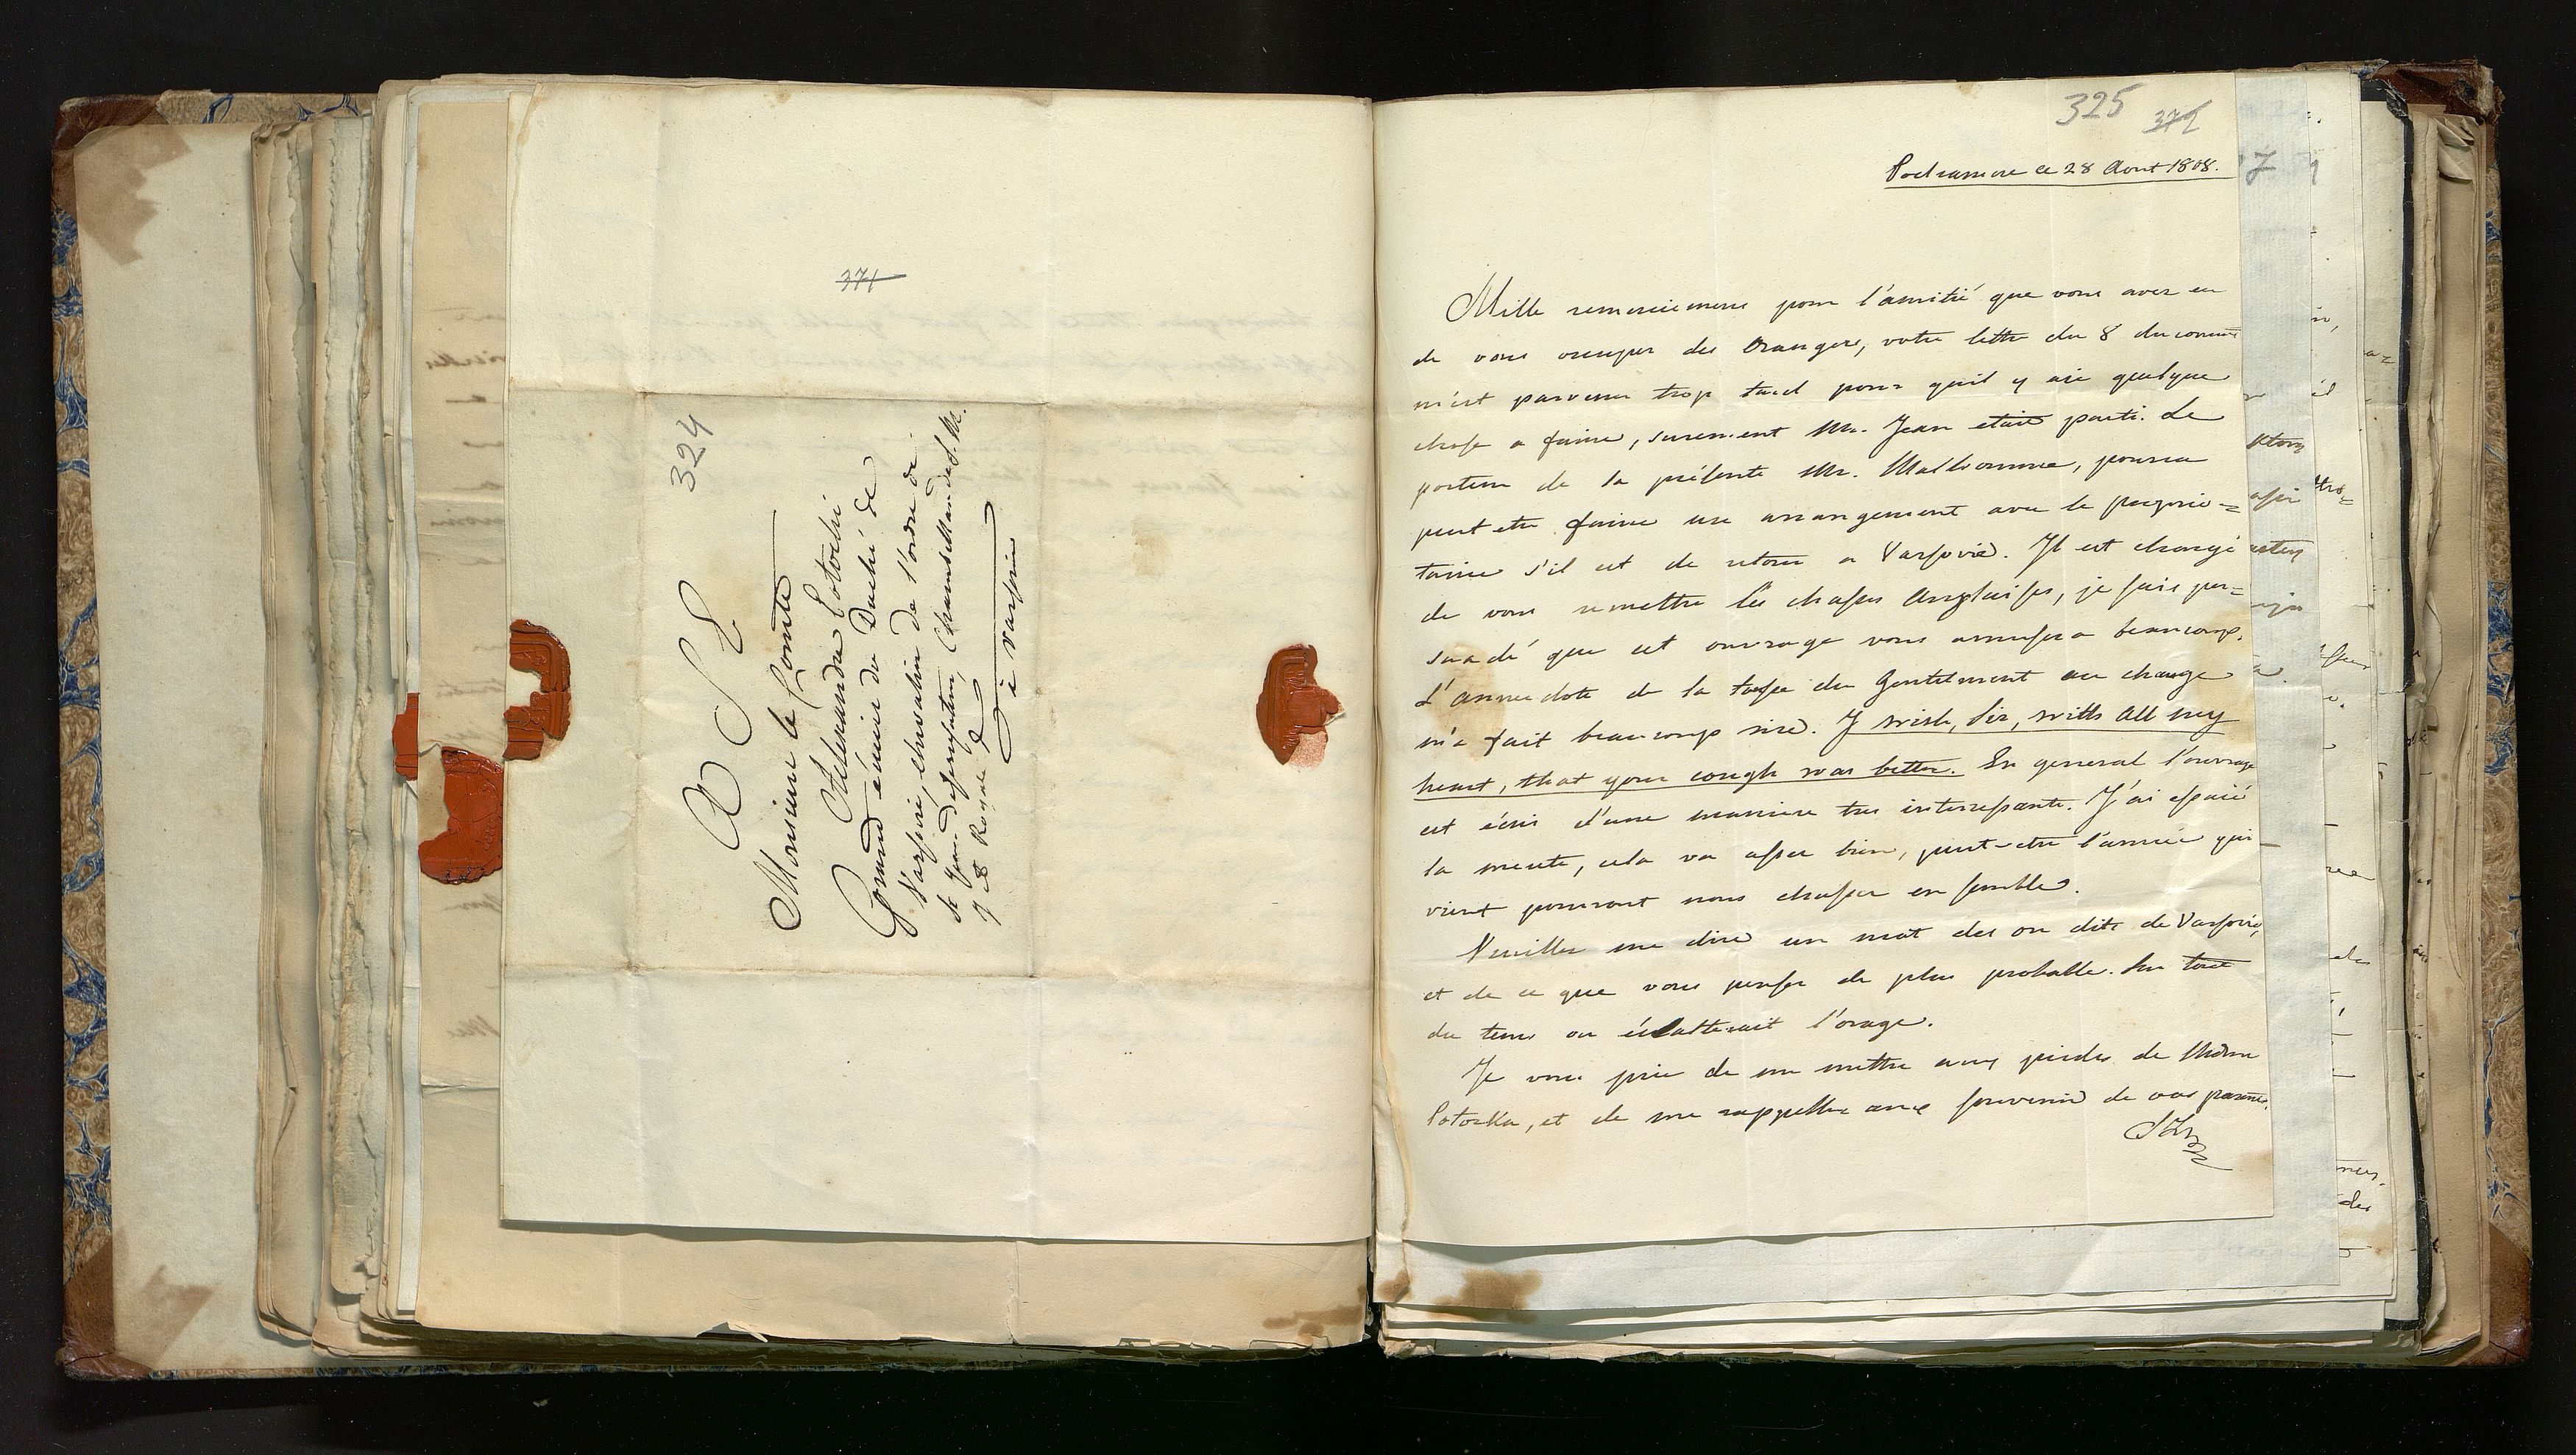 371
324
A S E
Monsieur le Comte
Alexandre Potocki
Grand écuier du Duché de
Varsovie, chevalier de l'ordre de
St Jean de Jerusalem, Chamb. de S. M.
J & Royale &
à Varsovie
325 372
ce 28 Aout 1808.
Mille remerciemens pour l'amitié que vous avez eu
de vous occuper des Orangers, votre lettre du 8 du courant
m'est parvenu trop tard pour qu'il y aie quelque
chose a faire, surement Mr. Jean etait parti. Le
porteur de la présente Mr. Malhomme, pourra
peut etre faire un arrangement avec le proprie=
taire s'il est de retour a Varsovie. Il est chargé
de vous remettre les chasses Anglaises, je suis per=
suadé que cet ouvrage vous amusera beaucoup.
L'annecdote de la du Gentilment au change
m'a fait beaucoup rire. J wish, Sir, with all my
heart, that your cough was better. En general l'ouvrage
est écris d'une maniere tres interressante. J'ai essaié
la meute, cela va assez bien, peut-etre l'année qui
vient pourront nous chasser en semble.
Veuillez me dire un mot des on dits de Varsovie,
et de ce que vous pensez de plus probable. Sur tout
du tems ou éclatterait l'orage.
Je vous prie de me mettre aux pieds de Mdme
Potocka, et de me rappeller aux souvenir de vos parens.